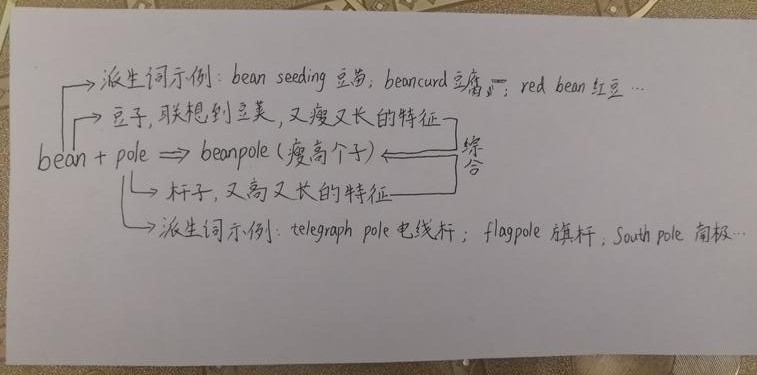 派生词示例: bean seeding 豆苗; beancurd 豆腐; red bean 红豆…
豆子, 联想到豆荚, 又瘦又长的特征
bean + pole ⇒ beanpole (瘦高个子) 综合
杆子, 又高又长的特征
派生词示例: telegraph pole 电线杆; flagpole 旗杆; South pole 南极…